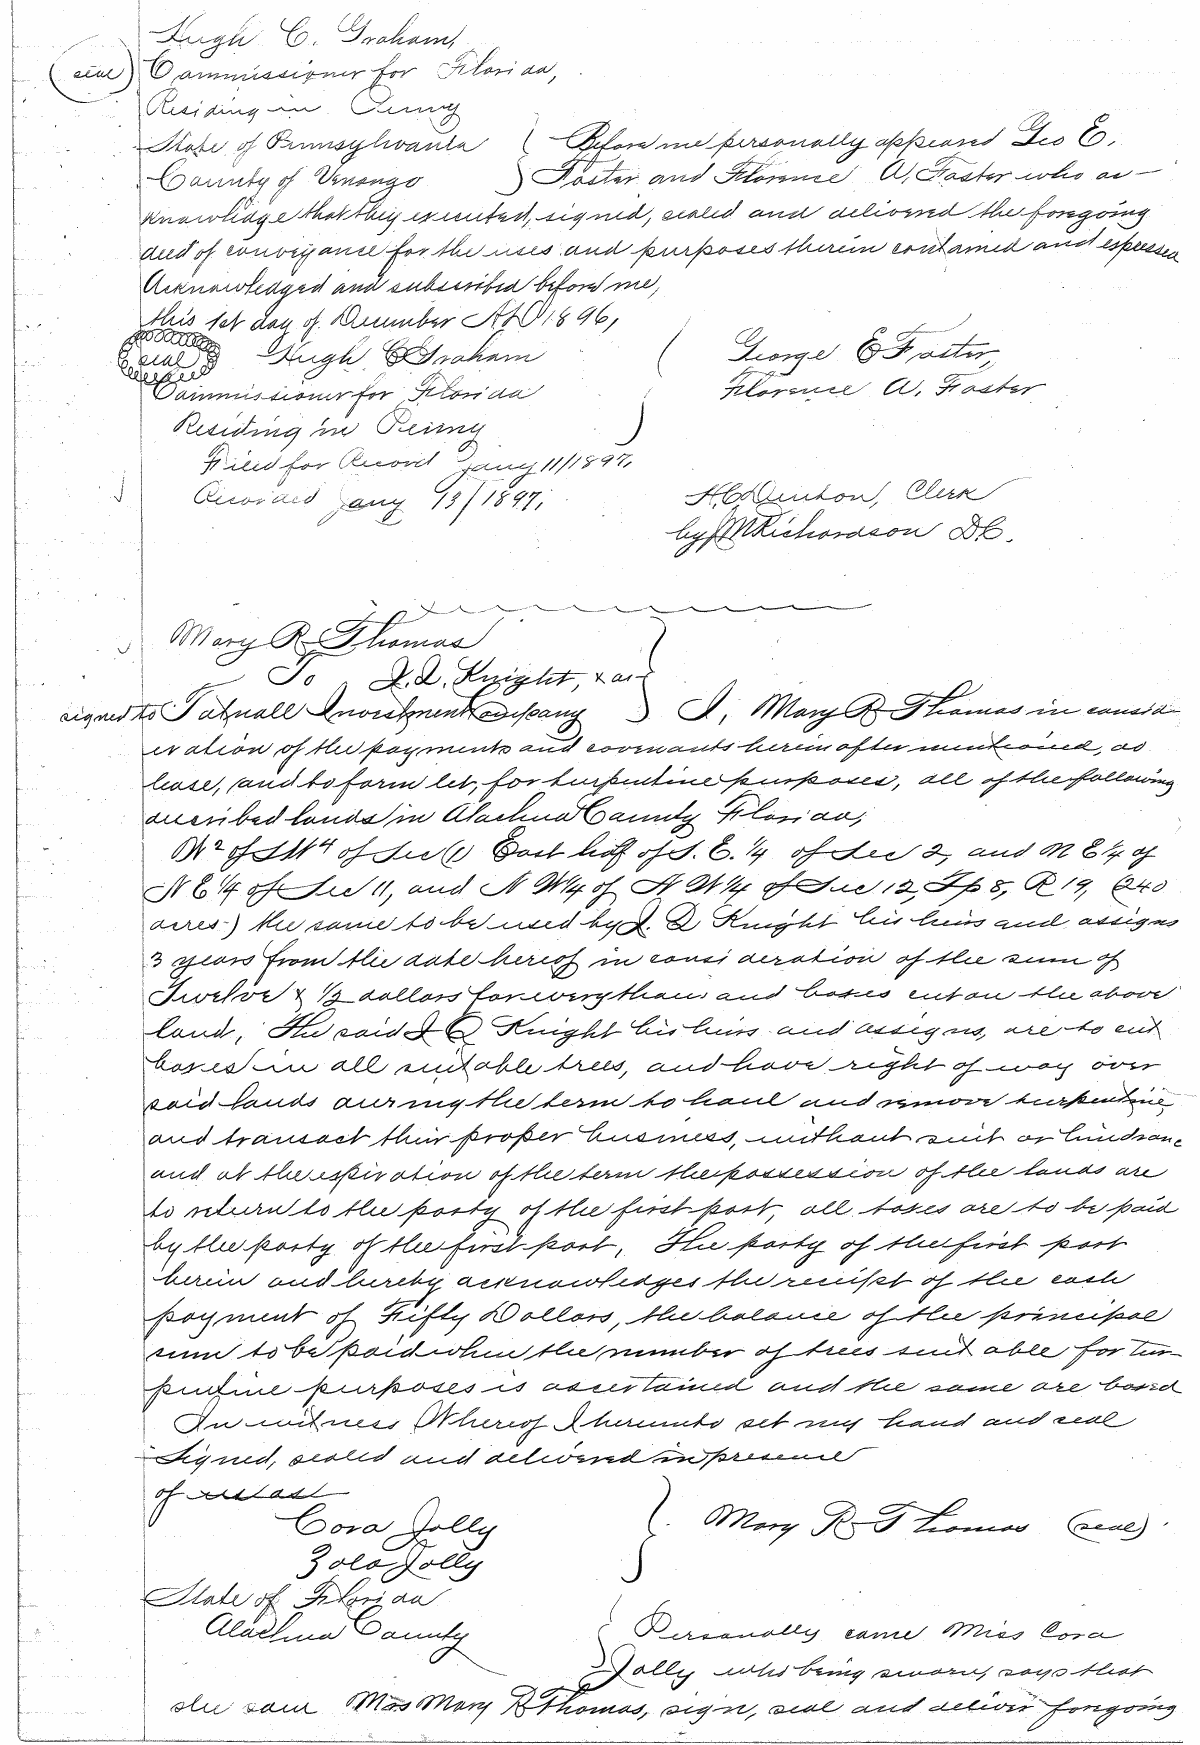 Hugh C. Graham,
(seal) Commissioner for Florida,
Residing in Penny
State of Pennsylvania } Before me personally appeared Geo E.
County of Venango } Foster and Florence A. Foster who ac-
knowledge that they executed, signed, sealed and delivered the foregoing
deed of conveyance for the uses and purposes therein contained and expressed
Acknowledged and subscribed before me,
this 1st day of December AD 1896,
seal Hugh C Graham
George E Foster,
Commissioner for Florida
Florence A. Foster
Residing in Penny
Filed for Record Jany 11/1897,
Recorded Jany 13/1897,
H.C. Denton, Clerk
by M Richardson DC.
Mary R Thomas
To J. D. Knight, & as-
signed to Tatnall Investment Company } I, Mary R Thomas in consid-
eration of the payments and covenants herein after mentioned, do
lease, and to farm let, for turpentine purposes, all of the following
described lands in Alachua County Florida,
W2 of SW4 of Sec 1 East half of S. E. 1/4 of Sec 2, and N E 1/4 of
N E 1/4 of Sec 11, and N W 1/4 of N W 1/4 of Sec 12, Tp 8, R 19, (240
acres) the same to be used by J. D Knight his heirs and assigns
3 years from the date hereof in consideration of the sum of
Twelve & 1/2 dollars for every thousand boxes cut on the above
land, The said J D Knight his heirs and assigns, are to cut
boxes in all suitable trees, and have right of way over
said lands during the term to haul and remove turpentine
and transact their proper business, without suit or hindranc
and at the expiration of the term the possession of the lands are
to return to the party of the first part, all taxes are to be paid
by the party of the first part, The party of the first part
herein and hereby acknowledges the receipt of the cash
payment of Fifty Dollars, the balance of the principal
sum to be paid when the number of trees suitable for tur-
pentine purposes is ascertained and the same are boxed
In witness Whereof I hereunto set my hand and seal
Signed, sealed and delivered in presence
of
Cora Jolly
Mary R Thomas (seal)
Zola Jolly
State of Florida
Alachua County } Personally came Miss Cora
Jolly who being sworn, says that
she saw Mrs Mary R Thomas, sign, seal and deliver foregoing